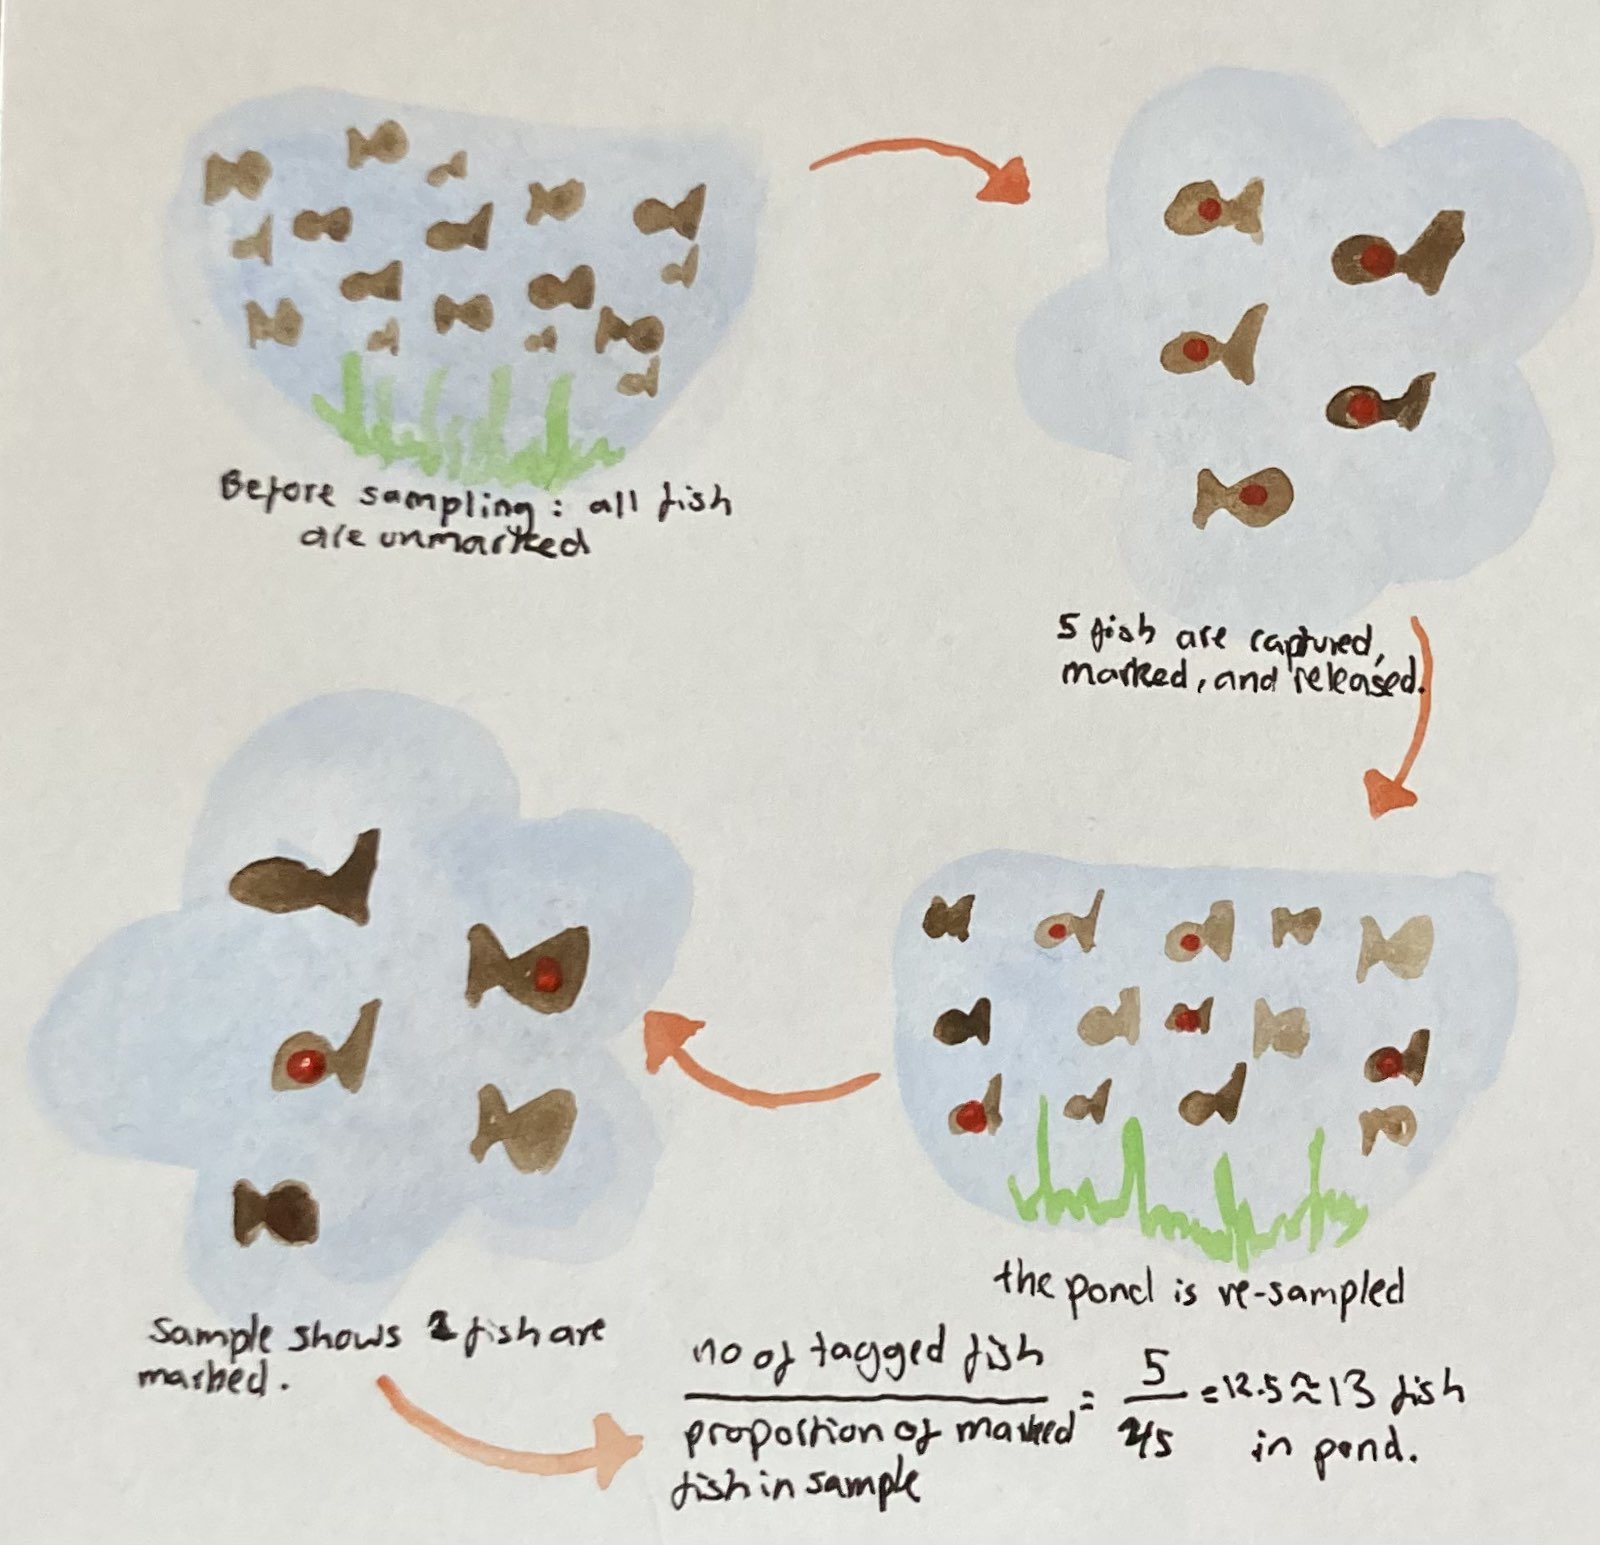 Before sampling: all fish
are unmarked
5 fish are captured,
marked, and released.
the pond is re-sampled
Sample shows 2 fish are
marked.
no of tagged fish
proportion of marked
fish in sample
= 5 / 2/5 = 12.5 ≈ 13 fish
in pond.